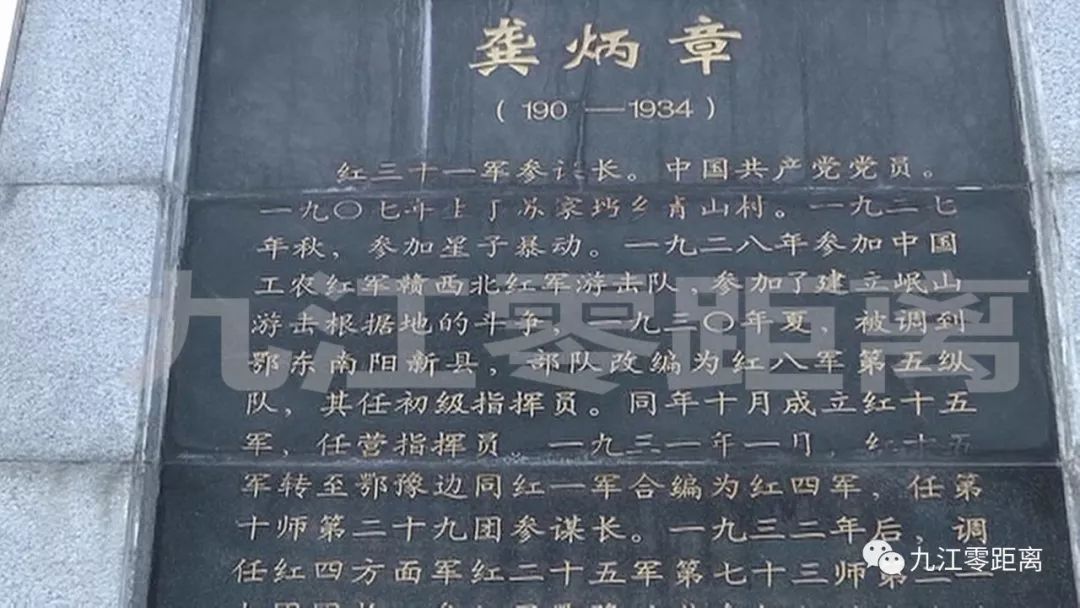 龚炳章
(190 —1934)
红三十一军参谋长。中国共产党党员。
一九〇七年生于苏家垱乡青山村。一九二七
年秋，参加星子暴动。一九二八年参加中国
工农红军赣西北红军游击队，参加了建立岷山
游击根据地的斗争，一九三〇年夏，被调到
鄂东南阳新县，部队改编为红八军第五纵
队，其任初级指挥员。同年十月成立红十五
军，任营指挥员 一九三一年一月，红十五
军转至鄂豫边同红一军合编为红四军，任第
十师第二十九团参谋长。一九三二年后，调
任红四方面军红二十五军第七十三师第二一
九江零距离
九江零距离